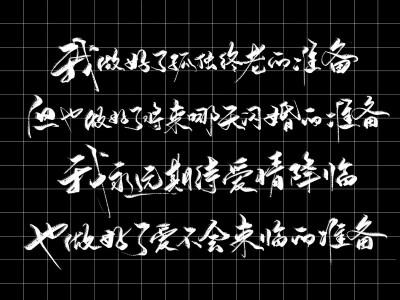 我做好了孤独终老的准备
但也做好了将来哪天闪婚的准备
我永远期待爱情降临
也做好了爱不会来临的准备